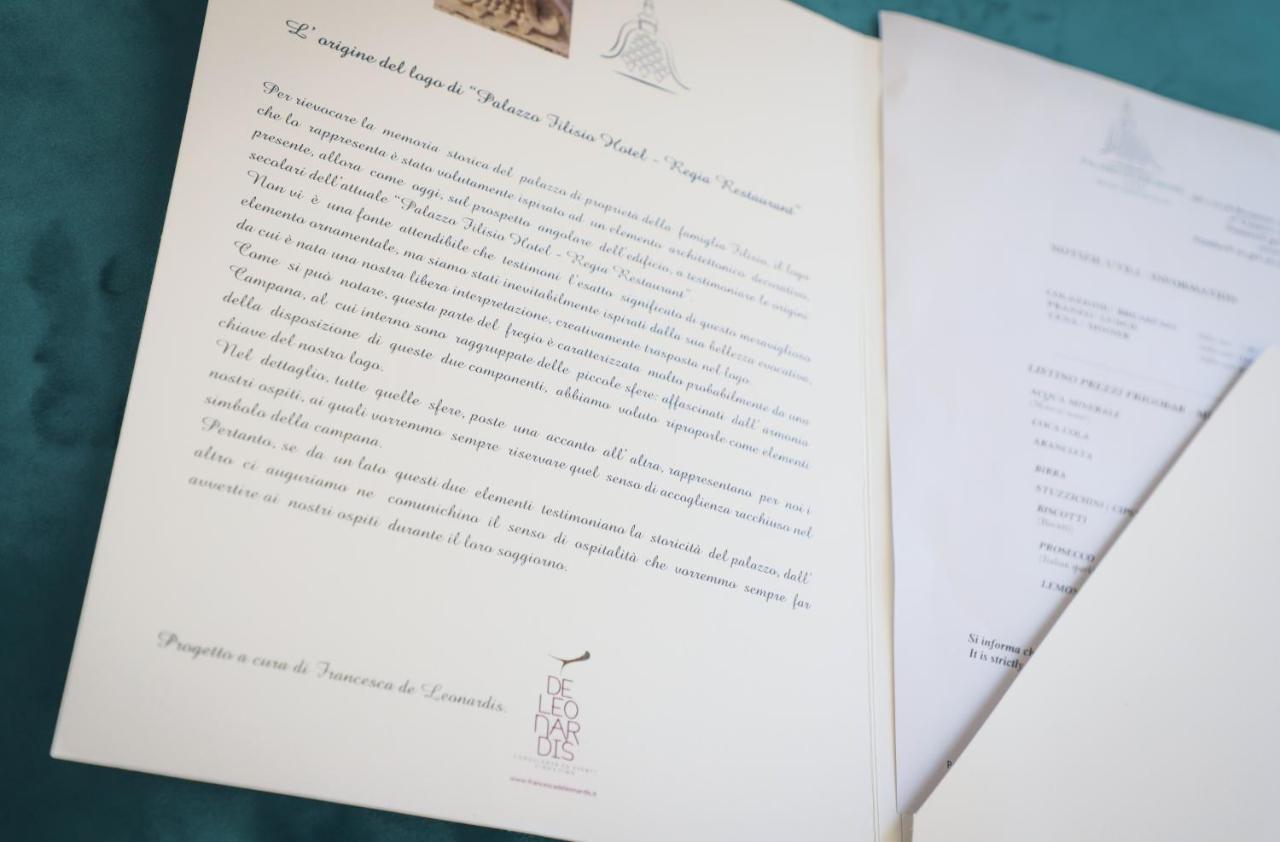 L' origine del logo di "Palazzo Filisio Hotel - Regia Restaurant"
Per rievocare la memoria storica del palazzo di proprietà della famiglia Filisio, il logo
che lo rappresenta è stato volutamente ispirato ad un elemento architettonico decorativo,
presente, allora come oggi, sul prospetto angolare dell'edificio, a testimoniare le origini
secolari dell'attuale "Palazzo Filisio Hotel - Regia Restaurant".
Non vi è una fonte attendibile che testimoni l'esatto significato di questo meraviglioso
elemento ornamentale, ma siamo stati inevitabilmente ispirati dalla sua bellezza evocativa,
da cui è nata una nostra libera interpretazione, creativamente trasposta nel logo.
Come si può notare, questa parte del fregio è caratterizzata molto probabilmente da una
Campana, al cui interno sono raggruppate delle piccole sfere: affascinati dall' armonia
della disposizione di queste due componenti, abbiamo voluto riproporle come elementi
chiave del nostro logo.
Nel dettaglio, tutte quelle sfere, poste una accanto all' altra, rappresentano per noi i
nostri ospiti, ai quali vorremmo sempre riservare quel senso di accoglienza racchiuso nel
simbolo della campana.
Pertanto, se da un lato questi due elementi testimoniano la storicità del palazzo, dall'
altro ci auguriamo ne comunichino il senso di ospitalità che vorremmo sempre far
avvertire ai nostri ospiti durante il loro soggiorno.
Progetto a cura di Francesca de Leonardis.
DE
LEO
NAR
DIS
www.francescadeleonardis.it
NOTIZIE UTILI - INFORMATION
COLAZIONE / BREAKFAST
PRANZO / LUNCH
CENA / DINNER
LISTINO PREZZI FRIGOBAR
ACQUA MINERALE
COCA COLA
ARANCIATA
BIRRA
STUZZICHINI
BISCOTTI
PROSECCO
Si informa
It is strictly